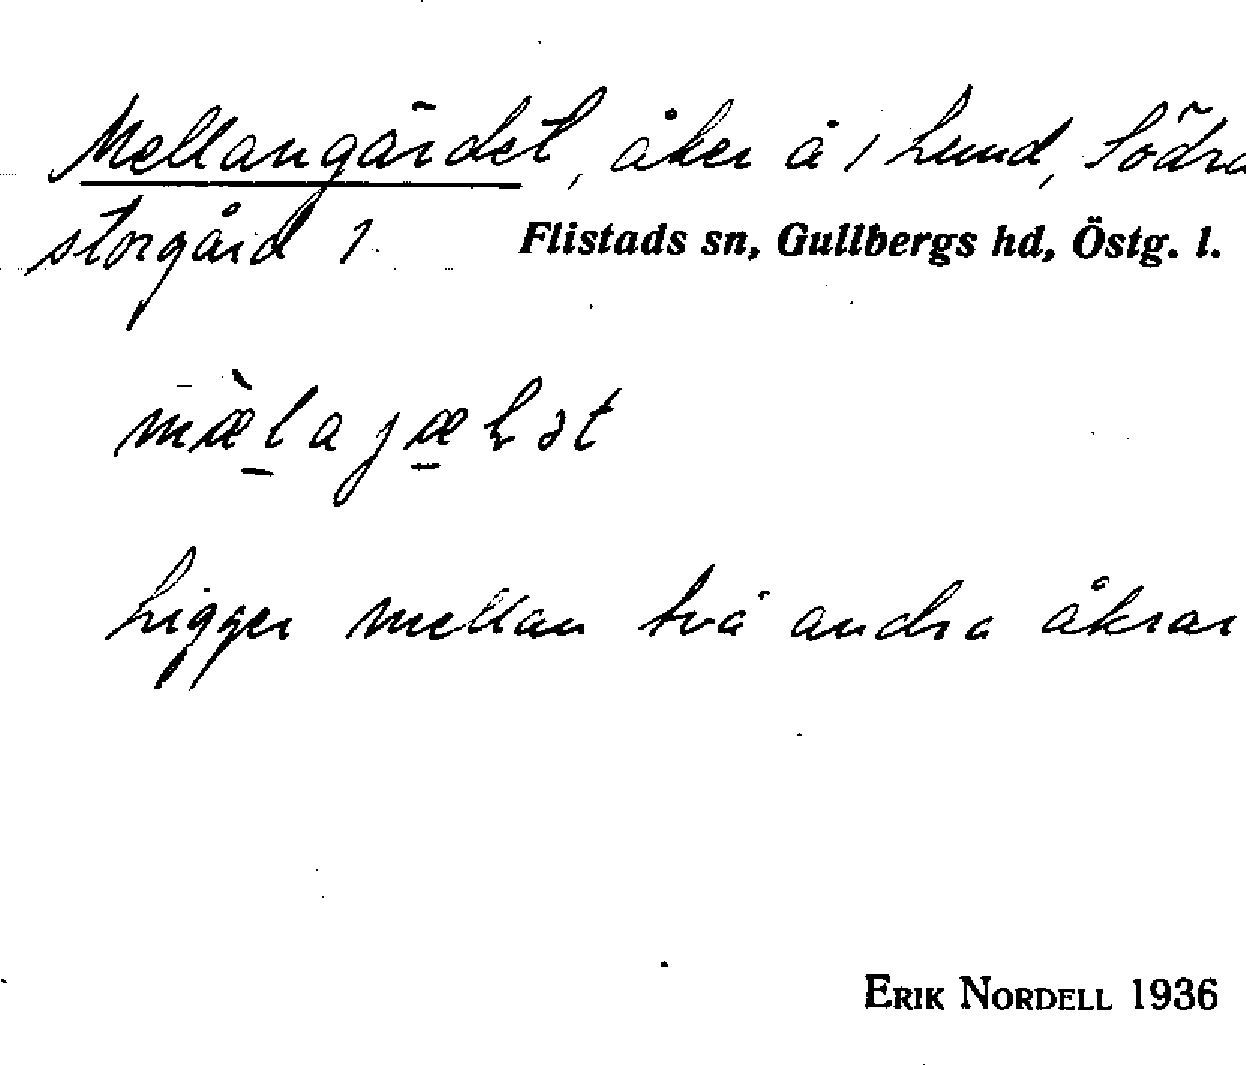 Mellangärdet, åker å 1 Lund, Södra
storgård 1. Flistads sn, Gullbergs hd, Östg. l.
Ligger mellan två andra åkrar
ERIK NORDELL 1936